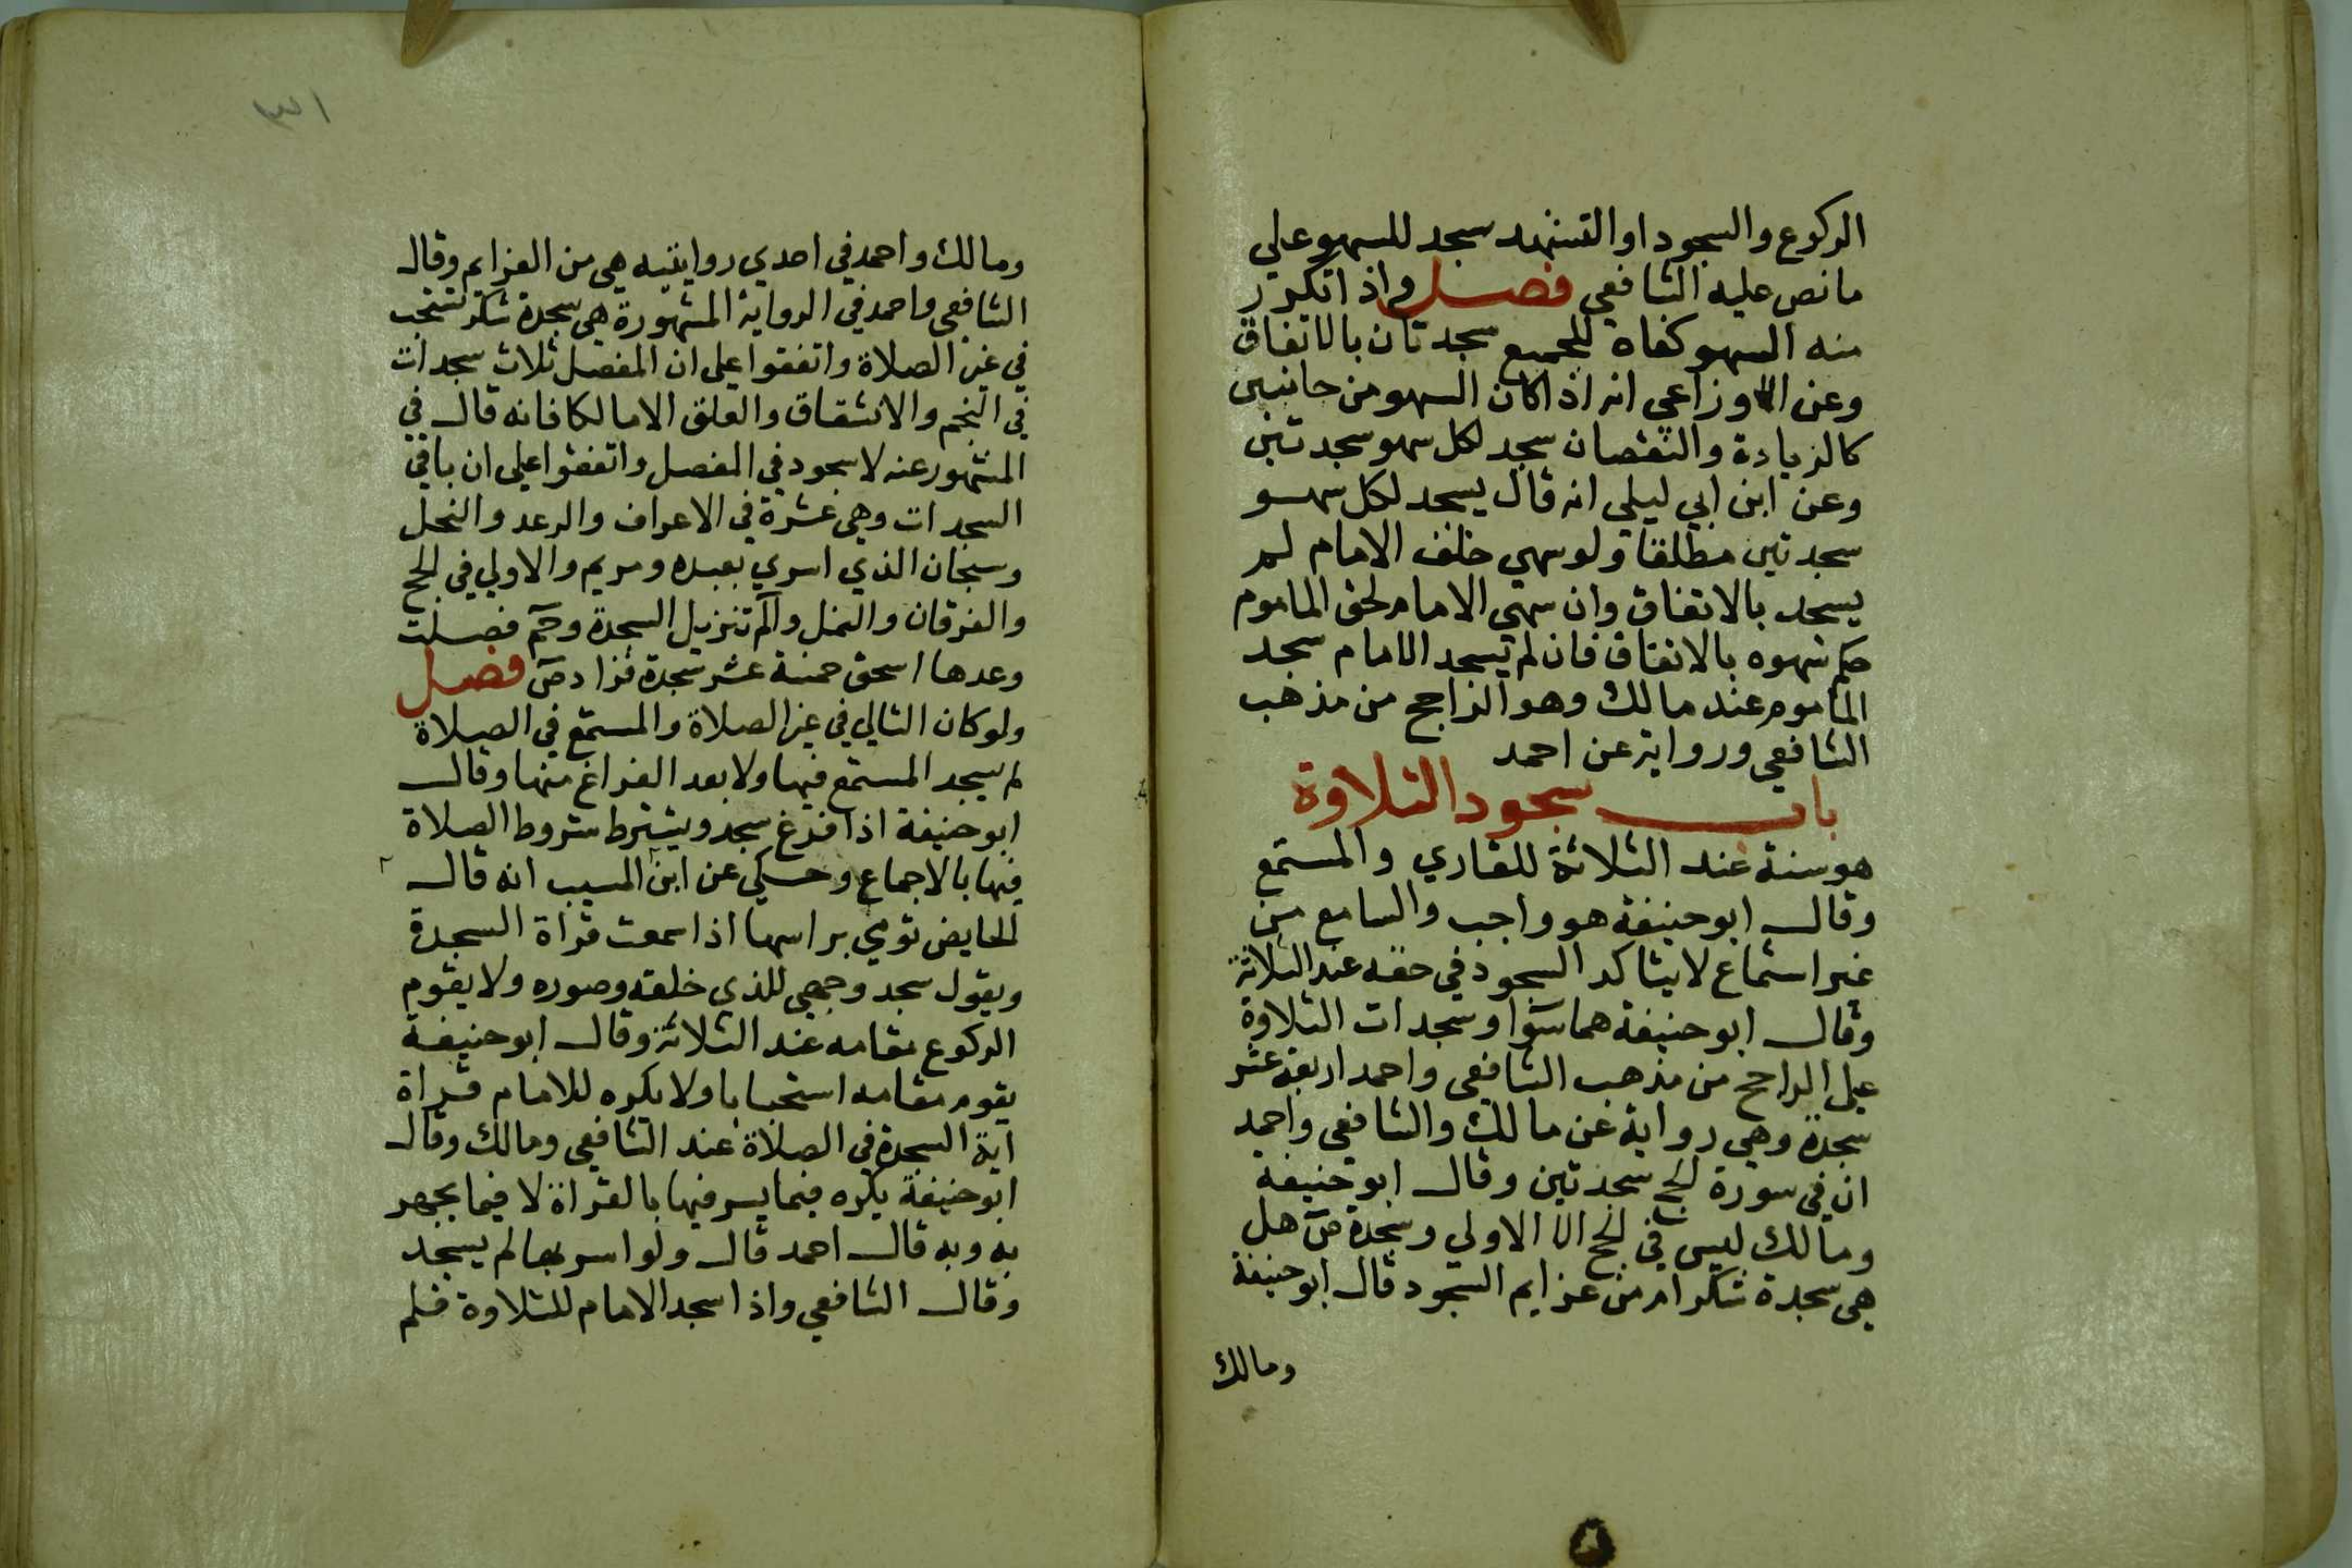 الركوع والسجود او التشهد سجد للسهو علي
ما نص عليه الشافعي فصل واذا تكرر
منه السهو كفاه للجميع سجدتان بالاتفاق
وعن الاوزاعي انه اذا كان السهو من جانبين
كالزيادة والنقصان سجد لكل سهو سجدتين
وعن ابن ابي ليلي انه قال يسجد لكل سهو
سجدتين مطلقا ولو سهي خلف الامام لم
يسجد بالاتفاق وان سهي الامام لحق الماموم
حكم سهوه بالاتفاق فان لم يسجد الامام سجد
الماموم عند مالك وهو الراجح من مذهب
الشافعي ورواية عن احمد
باب سجود التلاوة
هو سنة عند الثلاثة للقاري والمستمع
وقال ابو حنيفة هو واجب والسامع من
غير استماع لا يتاكد السجود في حقه عند الثلاثة
وقال ابو حنيفة هما سوا وسجدات التلاوة
علي الراجح من مذهب الشافعي واحمد اربعة عشر
سجدة وهي رواية عن مالك والشافعي واحمد
ان في سورة الحج سجدتين وقال ابو حنيفة
ومالك ليس في الحج الا الاولي وسجدة ص هل
هي سجدة شكر ام من عزايم السجود قال ابو حنيفة
ومالك
١٣١
ومالك واحمد في احدي روايتيه هي من العزايم وقال
الشافعي واحمد في الرواية المشهورة هي سجدة شكر تستحب
في غير الصلاة واتفقوا علي ان المفصل ثلاث سجدات
في النجم والانشقاق والعلق الا مالكا فانه قال في
المشهور عنه لا سجود في المفصل واتفقوا علي ان باقي
السجدات وهي عشرة في الاعراف والرعد والنحل
وسبحان الذي اسري بعبده ومريم والاولي في الحج
والفرقان والنمل والم تنزيل السجدة وحم فصلت
وعدها اسحق خمسة عشر سجدة فزاد ص فصل
ولو كان التالي في غير الصلاة والمستمع في الصلاة
لم يسجد المستمع فيها ولا بعد الفراغ منها وقال
ابو حنيفة اذا فرغ سجد ويشترط شروط الصلاة
فيها بالاجماع وحكي عن ابن المسيب انه قال
الحايض تومي براسها اذا سمعت قراة السجدة
ويقول سجد وجهي للذي خلقه وصوره ولا يقوم
الركوع مقامه عند الثلاثة وقال ابو حنيفة
يقوم مقامه استحبابا ولا يكره للامام قراة
اية السجدة في الصلاة عند الشافعي ومالك وقال
ابو حنيفة يكره فيما يسر فيها بالقراة لا فيما يجهر
به وبه قال احمد قال ولو اسر بها لم يسجد
وقال الشافعي واذا سجد الامام للتلاوة فلم